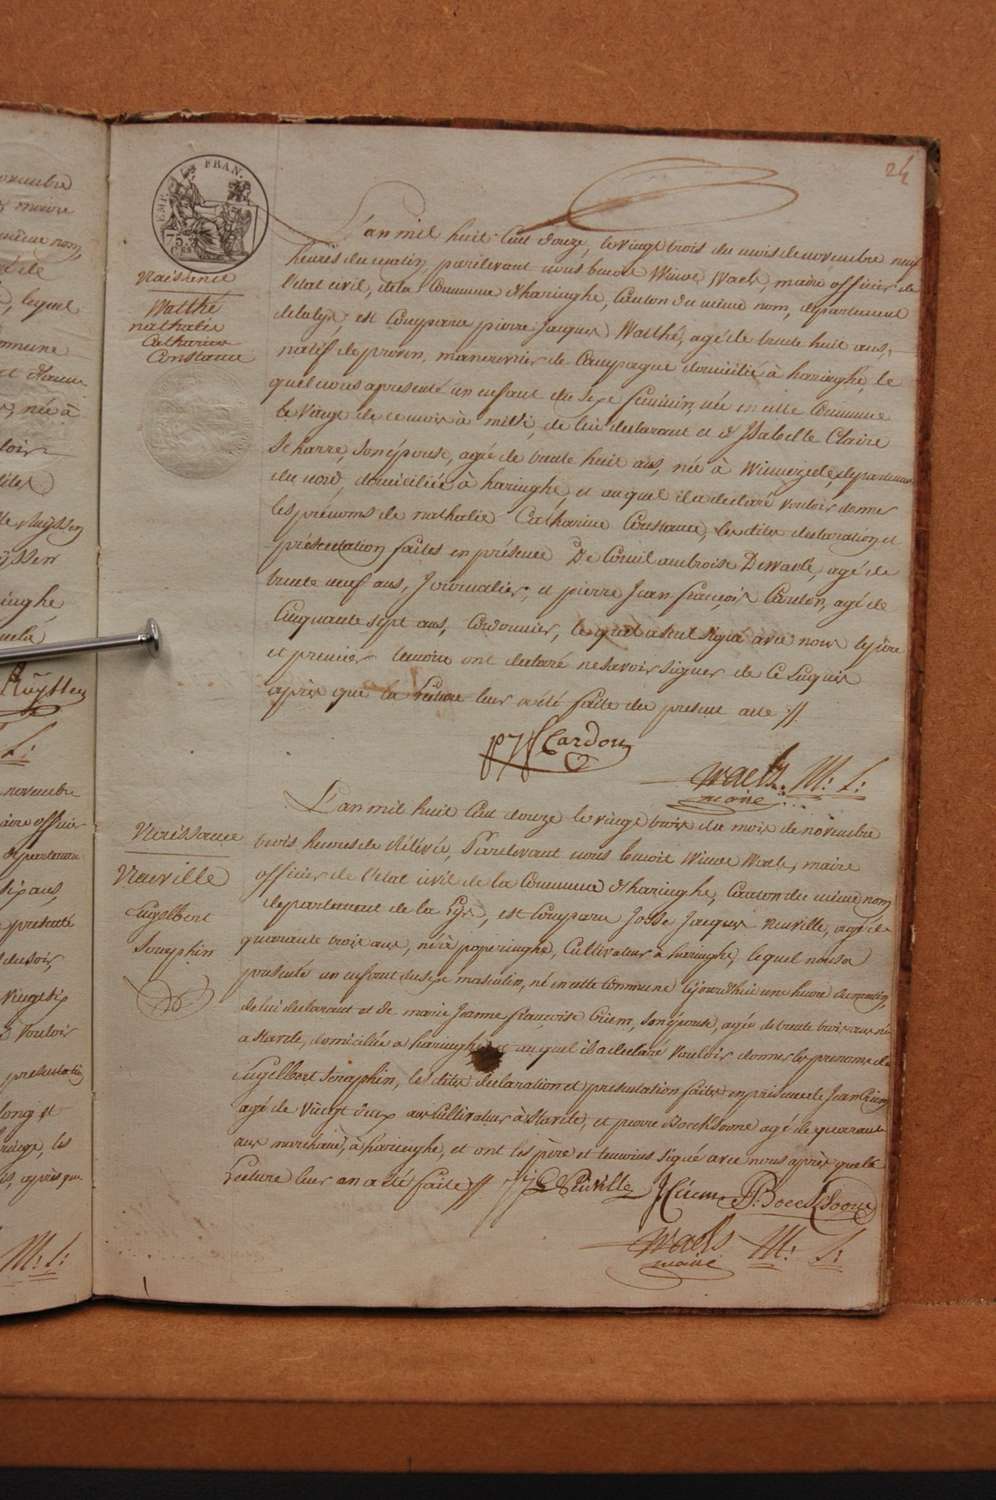 24
EMP. FRAN.
Naissance
Watthé
nathalie
Catharine
Constance
L'an mil huit Cent douze, le vingt trois du mois de novembre neuf
heures du matin, pardevant nous benoit Winoc Waels, maire officier de
l'état civil, de la Commune d'haringhe, Canton du même nom, département
de la lys; est Comparu pierre Jacques Watthé, agé de trente huit ans,
natif de proven, manouvrier de Campagne domicilié à haringhe, le
quel nous a presenté un enfant du sexe feminin, née en cette Commune
le vingt de ce mois à midi, de lui declarant et d'Isabelle Claire
Scharre, son épouse, agée de trente huit ans, née à Winnezeele, departement
du nord, domiciliée a haringhe, et auquel il a declaré vouloir donner
les prénoms de nathalie Catharine Constance, les dites declaration et
présentation faites en présence De Cornil ambroise Dewaele, agé de
trente neuf ans, Journalier, et pierre Jean françois Cardon, agé de
Cinquante sept ans, Cordonnier, lesquel a seul signé avec nous le père
et premier temoin ont declaré ne savoir signer de ce enquis
après que la lecture leur a été faite du present acte //
pJf Cardon
Waels M: L:
maire
Naissance
Neuville
Engelbert
Seraphin
L'an mil huit Cent douze le vingt trois du mois de novembre
trois heures de rélévée, Pardevant nous benoit Winoc Waels, maire
officier de l'état civil de la Commune d'haringhe, Canton du même nom
departement de la Lys, est Comparu Josse Jacques Neuville, agé de
quarante trois ans, né à poperinghe, Cultivateur à haringhe, lequel nous a
presenté un enfant du sexe masculin, né en cette Commune cejourd'hui une heure du matin,
de lui declarant et de marie Jeanne françoise Ciem, son épouse, agée de trente trois ans née
a Stavele, domiciliée a haringhe, et auquel il a declaré vouloir donner les prenoms de
Engelbert Seraphin, les dites declaration et presentation faites en présence de Jean Ciem
agé de vingt deux ans Cultivateur à Stavele, et pierre Boecksoone agé de quarante
ans marchand, à haringhe, et ont les père et temoins signé avec nous après que la
Lecture leur en a été faite //
Neuville J Ciem P: Boecksoone
Waels M: L:
maire